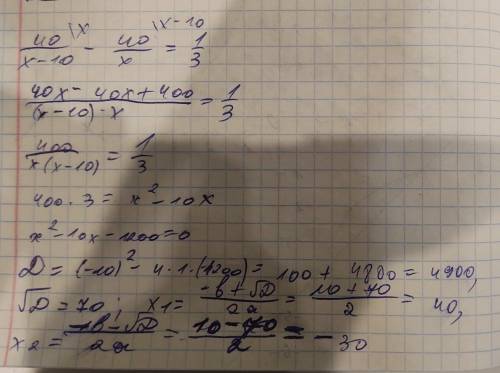 40/(x-10) \x - 40/x \x-10 = 1/3
(40x - 40x + 400)/((x-10)·x) = 1/3
400/(x(x-10)) = 1/3
400 · 3 = x² - 10x
x² - 10x - 1200 = 0
D = (-10)² - 4 · 1 · (-1200) = 100 + 4800 = 4900,
√D = 70; x1 = (-b + √D)/2a = (10 + 70)/2 = 40,
x2 = (-b - √D)/2a = (10 - 70)/2 = -30